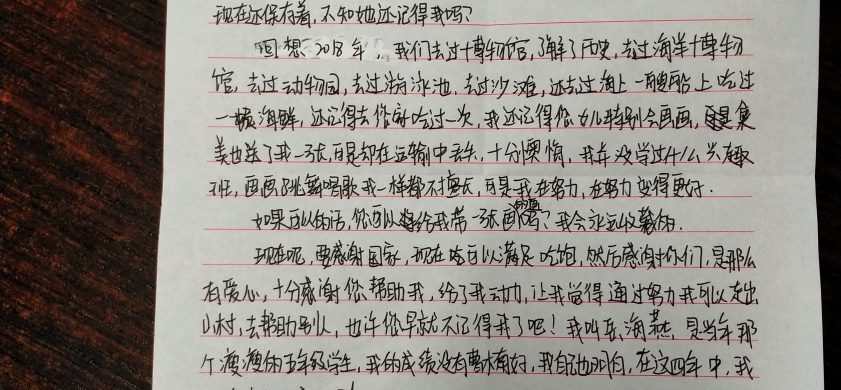 现在还保存着,不知她还记得我吗?
回想2018年,我们去过博物馆,了解了历史,去过海洋博物
馆,去过动物园,去过游泳池,去过沙滩,还去过海上一艘船上吃过
一顿海鲜,还记得去你家吃过一次,我还记得您女儿特别会画画,
美也送了我一张,可是却在运输中丢失,十分懊悔,我并没学过什么兴趣
班,画画跳舞唱歌我一样都不擅长,可是我在努力,在努力变得更好.
如果可以的话,您可以给我带一张画吗?我会永远收藏的.
现在呢,要感谢国家,现在可以满足吃饱,然后感谢你们,是那么
有爱心,十分感谢您帮助我,给了我动力,让我觉得通过努力我可以走出
山村,去帮助别人,也许您早就不记得我了吧!我叫岳海燕,是当年那
个瘦瘦的五年级学生,我的成绩没有要求有好,我自己也明白,在这四年中,我